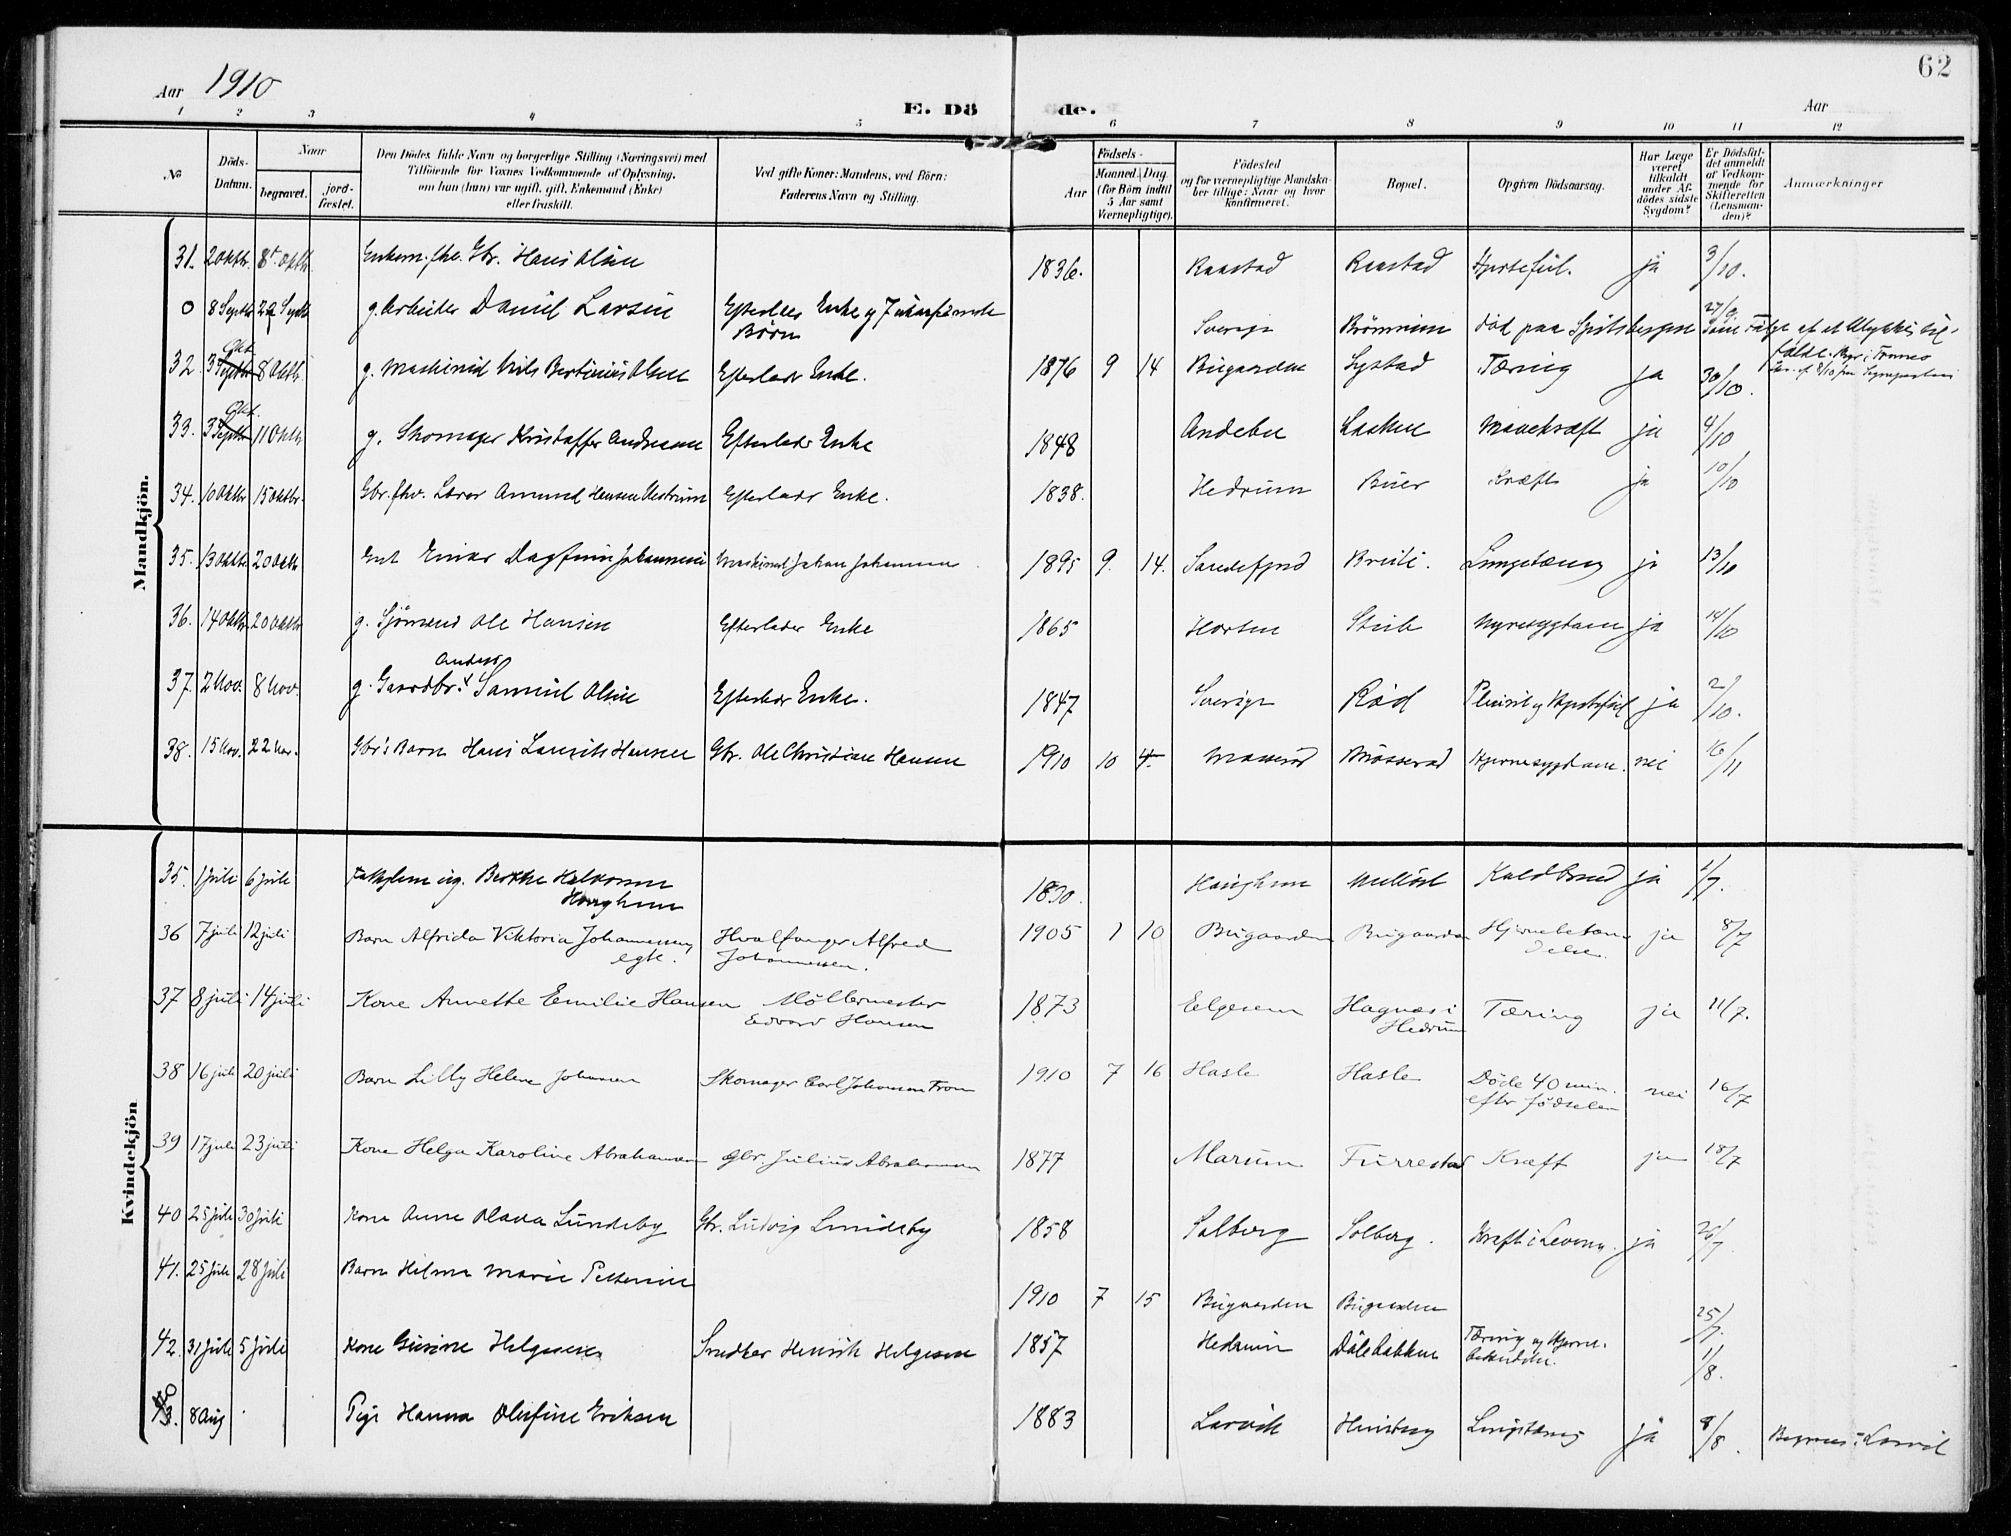 Aar 1910
E. Döde.
Aar
62
1 2 3 4 5 6 7 8 9 10 11 12
No
Döds-Datum.
Naar
begravet.
jord-fæstet.
Den Dödes fulde Navn og borgerlige Stilling (Næringsvei) med
Tilföiende for Voxnes Vedkommende af Oplysning,
om han (hun) var ugift, gift, Enkemand (Enke)
eller fraskilt.
Ved gifte Koner: Mandens, ved Börn:
Faderens Navn og Stilling.
Födsels-
Aar
Maaned. Dag.
(for Börn indtil
5 Aar samt
Værnepligtige).
Födested
og for værnepligtige Mandska-
ber tillige: Naar og hvor
konfirmeret.
Bopæl.
Opgiven Dödsaarsag.
Har Læge
været
tilkaldt
under Af-
dödes sidste
Sygdom?
Er Dödsfal-
det anmeldt
af Vedkom-
mende for
Skifteretten
(Lensman-
den)?
Anmærkninger
Mandkjön.
31. 2 Oktbr. 8 Oktbr. Enkem. fhv. Gbr. Hans Olsen 1836. Raastad Raastad Hjertefeil. ja 3/10.
0 8 Septbr 29 Septbr g. Arbeider Daniel Larsen Efterlader Enke og 7 uforsørgede Børn Sverige død paa Spitsbergen 27/9 som Følge af et Ulykkestil-
fælde.
32. 3 Septbr Okt. 8 Oktbr. g. Maskinist Nils Bertinius Olsen Efterlader Enke. 1876 9 14 Bugaarden Tæring ja 30/10.
33. 3 Septbr Okt. 11 Oktbr g. Skomager Kristoffer Andreasen Efterlader Enke 1848 Andebu Mavekræft ja 4/10
34. 10 Oktbr 15 Oktbr. Gbr. fhv. Lærer Amund Hansen Efterlader Enke. 1838. Hedrum Buer Kræft ja 10/10
35. 13 Oktbr 20 Oktbr Einar Dagfinn Johannesen Maskinist Johan Johannesen 1895 9. 14. Sandefjord Breili. ja 13/10
36. 14 Oktbr 20 Oktbr g. Sjømand Ole Hansen Efterlader Enke 1865 Horten Nyresygdom ja 14/10
37. 2 Nov. 8 Nov. g. Gaardbr. Anders Samuel Olsen Efterlader Enke. 1847 Sverige Rød og Hjertefeil ja 2/10.
38. 15 Nov. 22 Nov. Gbr's Barn Hans Laurits Hansen Gbr. Ole Christian Hansen 1910 10 4. Hjernesygdom. nei 16/11
Kvindekjön
35. 1 Juli 6 Juli 1830. ja 1/7.
36 7 juli 12 juli Barn Alfrida Viktoria Johannessen, egte. Hvalfanger Alfred
Johannessen. 1905 1 10 Bugaarden Bugaarden Hjernebetæn-
delse. ja 8/7
37 8 juli 14 juli Kone Annette Emilie Hansen Møllermester
Edvard Hansen 1873 Hagnæs i
Hedrum Tæring ja 11/7.
38 16 juli 20 juli Barn Lilly Helene Johansen Skomager Carl Johansen 1910 7 16 Hasle Hasle Døde 40 min.
efter fødselen nei 16/7
39 17 juli 23 juli Kone Helga Karoline Abrahamsen Gbr. Julius Abrahamsen 1877 Marum Furrestad Kræft ja 18/7
40 25 juli 30 juli Kone Anne Olava Lundeby Gbr. Ludvig Lundeby 1858 Solberg Solberg. Kræft i Leveren. ja
41. 25 Juli 28 Juli Barn Hilma Marie Pettersen 1910 7 15 Bugaarden Bugaarden 25/7.
42. 31 Juli 5 Juli Kone Gurine Helgesen Snedker Henrik Helgesen 1857 Hedrum Tæring og 1/8.
8 Aug Pige Hanna Olufine Eriksen 1883 Larvik ja 8/8. Begraves i Larvik